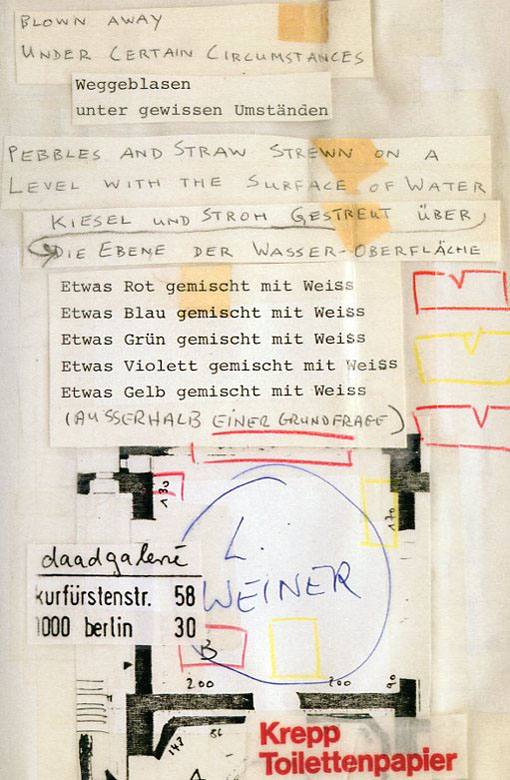 BLOWN AWAY
UNDER CERTAIN CIRCUMSTANCES
Weggeblasen
unter gewissen Umständen
PEBBLES AND STRAW STREWN ON A
LEVEL WITH THE SURFACE OF WATER
KIESEL UND STROH GESTREUT ÜBER
DIE EBENE DER WASSER-OBERFLÄCHE
Etwas Rot gemischt mit Weiss
Etwas Blau gemischt mit Weiss
Etwas Grün gemischt mit Weiss
Etwas Violett gemischt mit Weiss
Etwas Gelb gemischt mit Weiss
(AUSSERHALB EINER GRUNDFRAGE)
130
170
L.
WEINER
daadgalerie
kurfürstenstr. 58
1000 berlin 30
B
200
200
90
147
86
A
Krepp
Toilettenpapier